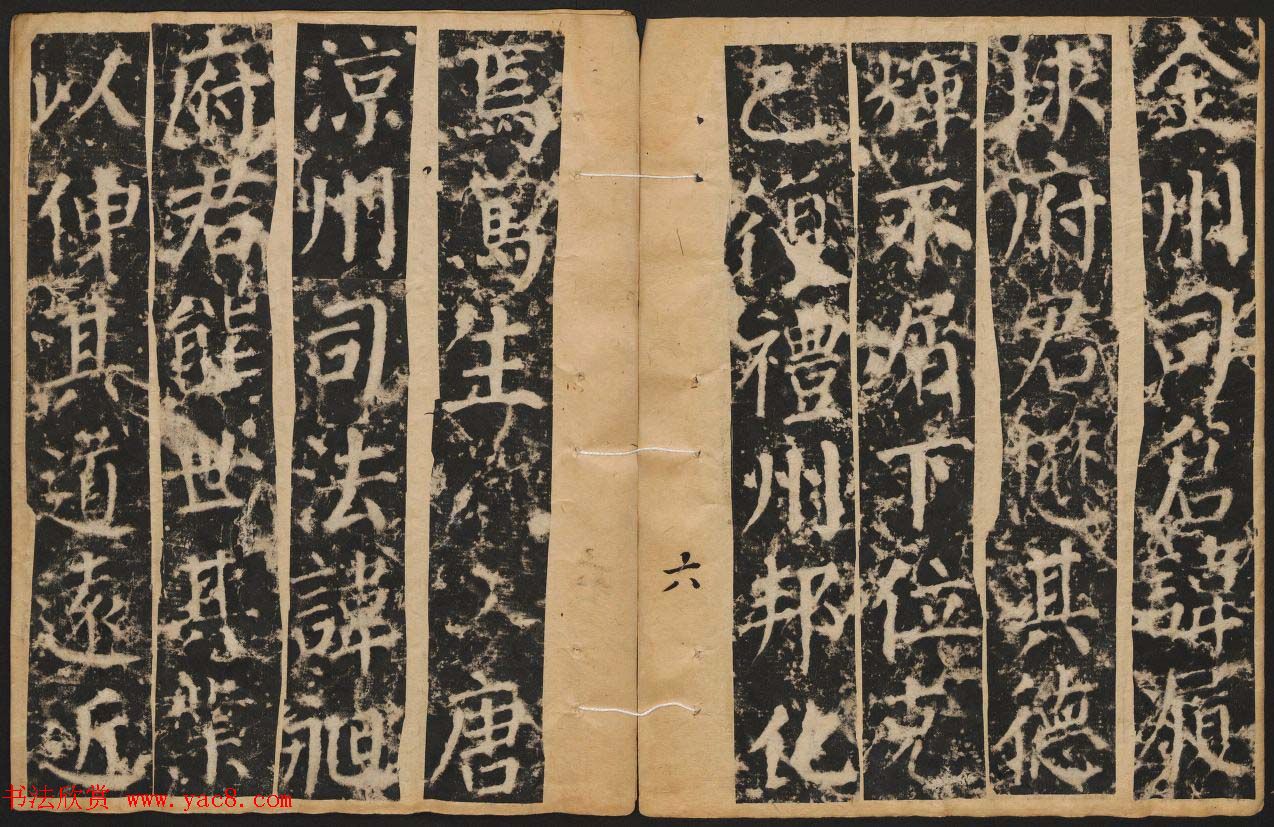 金州司倉諱履
球府君懋其德
輝不屑下位克
己復禮州邦化
六
焉篤生 唐
涼州司法諱昶
府君能世其業
以伸其道遠近
书法欣赏 www.yac8.com